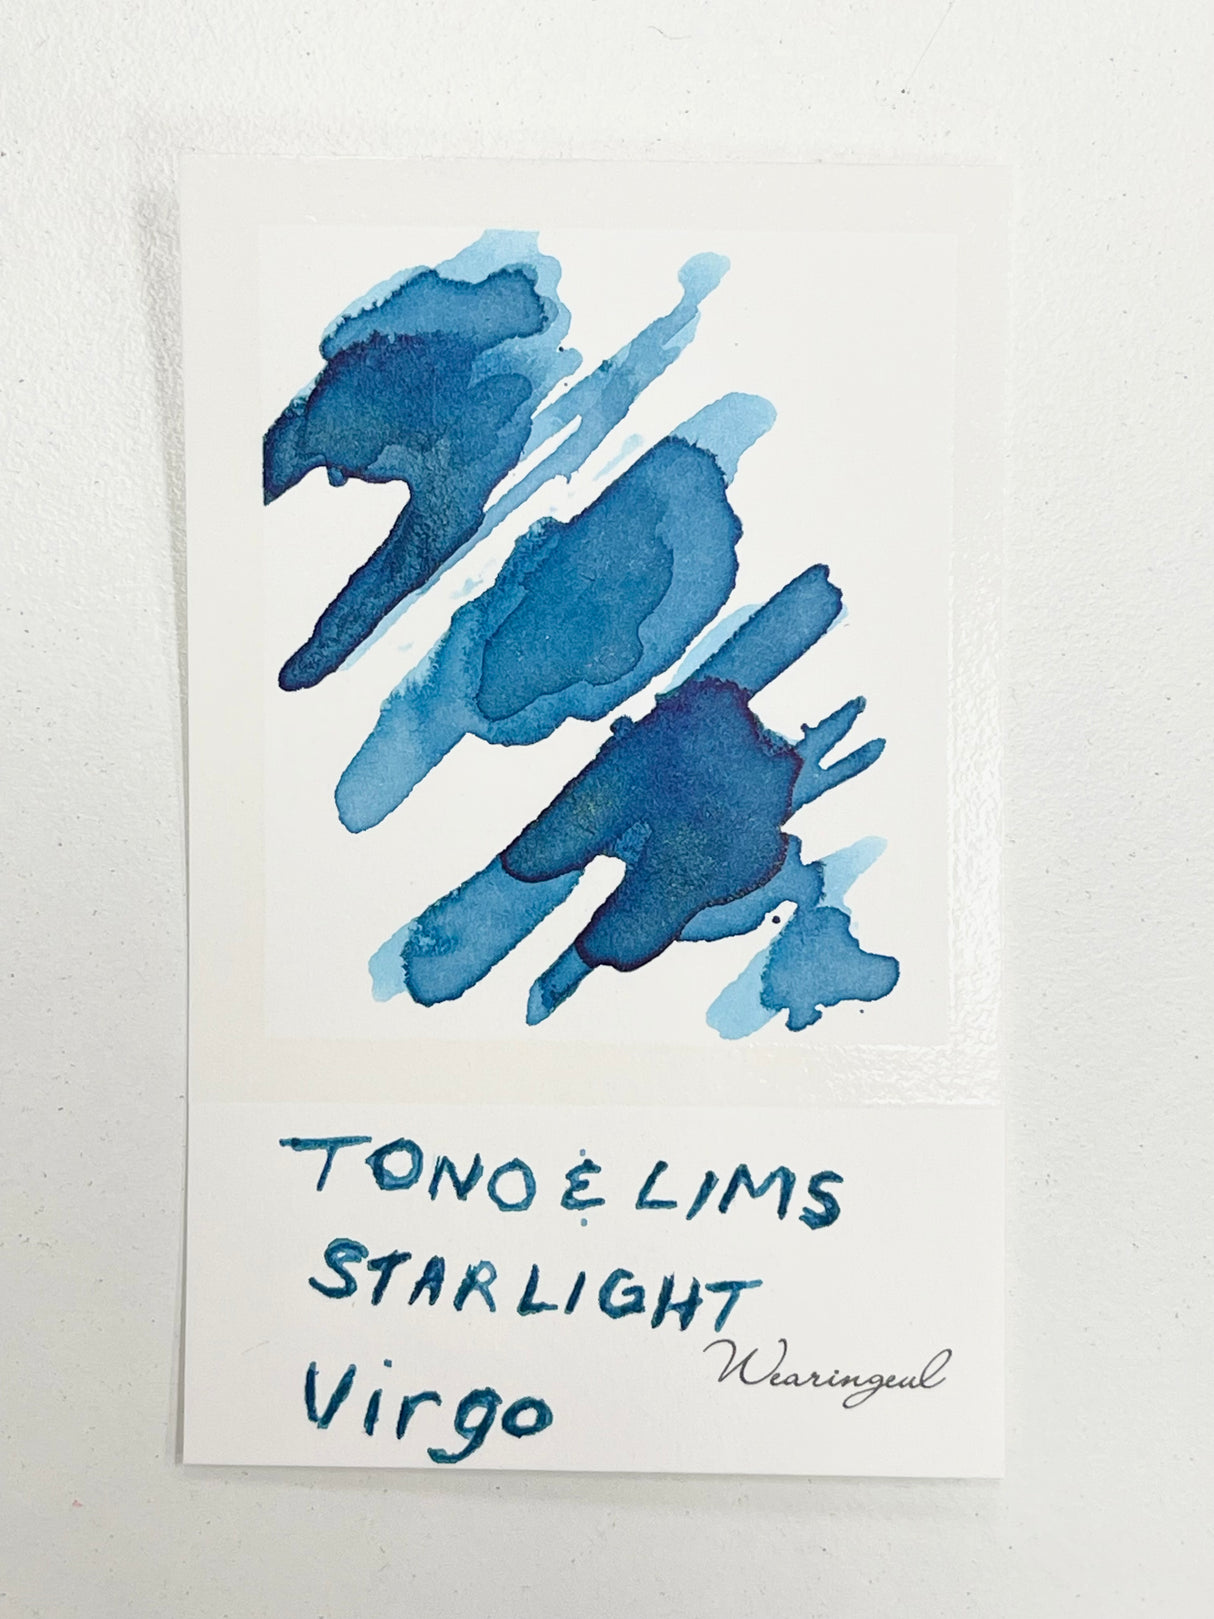 TONO & LIMS
STARLIGHT
Wearingeul
Virgo